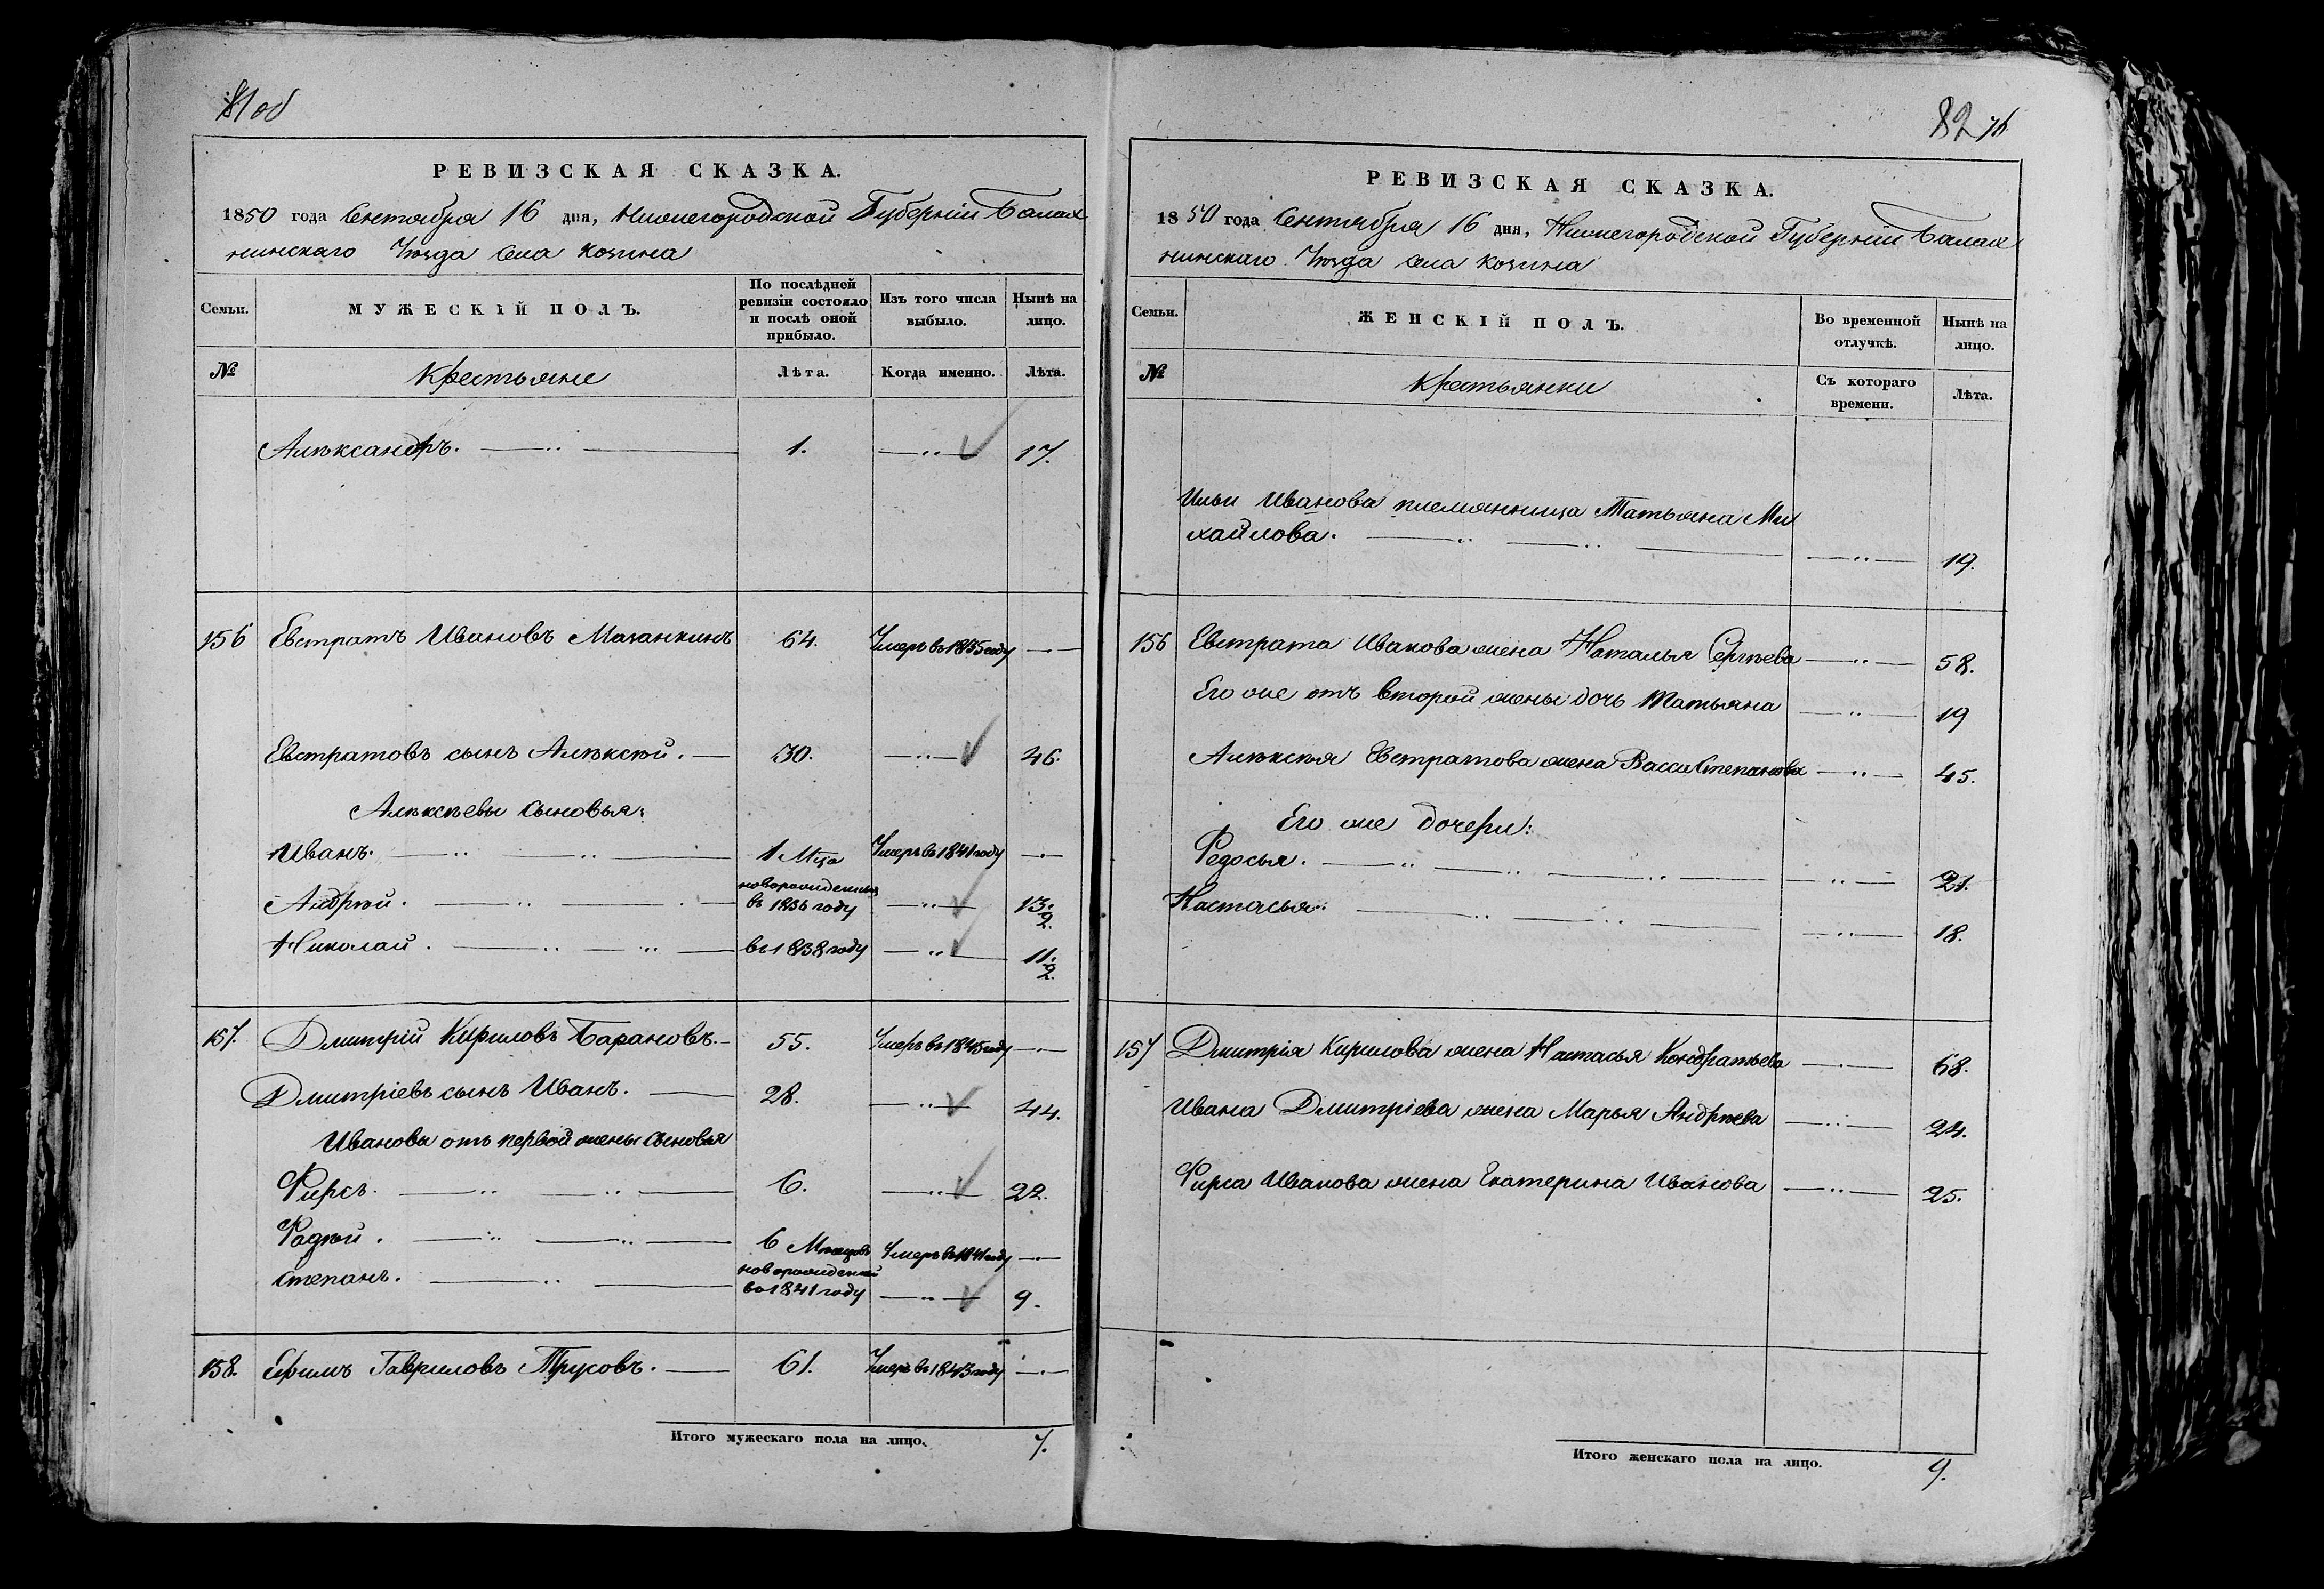 81 об
РЕВИЗСКАЯ СКАЗКА.
1850 года Сентября 16 дня, Нижегородской Губерніи Балах
нинскаго Уѣзда Села Козина
Семьи.
МУЖЕСКІЙ ПОЛЪ.
По послѣдней
ревизіи состояло
и послѣ оной
прибыло.
Изъ того числа
выбыло.
Нынѣ на
лицо.
№
Крестьяне
Лѣта.
Когда именно.
Лѣта.
Алѣксандръ. 1. 17.
156 Евстратъ Ивановъ Мазанкинъ 64. Умеръ въ 1835 году
Евстратовъ сынъ Алѣксѣй. 30. 46.
Алѣксѣевы сыновья:
Иванъ. 1 Мца Умеръ въ 1841 году
Андрѣй. новорожденный
въ 1836 году 13 1/2.
Николай. въ 1838 году 11 1/2.
157. Дмитрій Кириловъ Барановъ. 55. Умеръ въ 1845 году
Дмитріевъ сынъ Иванъ. 28. 44.
Ивановы отъ первой жены сыновья
Фирсъ. 6. 22.
Фадѣй. 6 Мѣсяцовъ Умеръ въ 1841 году
Степанъ. новорожденный
въ 1841 году 9.
158. Ефимъ Гавриловъ Трусовъ. 61. Умеръ въ 1843 году
Итого мужескаго пола на лицо. 7.
82
РЕВИЗСКАЯ СКАЗКА.
1850 года Сентября 16 дня, Нижегородской Губерніи Балах
нинскаго Уѣзда Села Козина
Семьи.
ЖЕНСКІЙ ПОЛЪ.
Во временной
отлучкѣ.
Нынѣ на
лицо.
№
Крестьянки
Съ котораго
времени.
Лѣта.
Ильи Иванова племянница Татьяна Ми
хайлова. 19.
156 Евстрата Иванова жена Наталья Сергѣева 58.
Его же отъ второй жены дочь Татьяна 19
Алѣксѣя Евстратова жена Васса Степанова 45.
Его же дочери:
Федосья. 21.
Настасья. 18.
157 Дмитрія Кирилова жена Настасья Кондратьева 68.
Ивана Дмитріева жена Марья Андрѣева 24.
Фирса Иванова жена Екатерина Иванова 25.
Итого женскаго пола на лицо. 9.